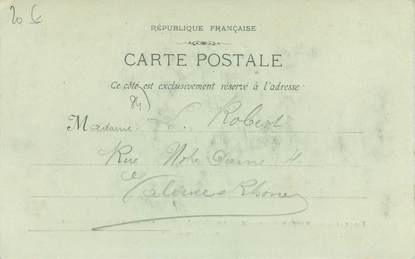 20 €
RÉPUBLIQUE FRANÇAISE
CARTE POSTALE
Ce côté est exclusivement réservé à l'adresse
Madame L. Robert
Rue Notre Dame 4
Valence s Rhône